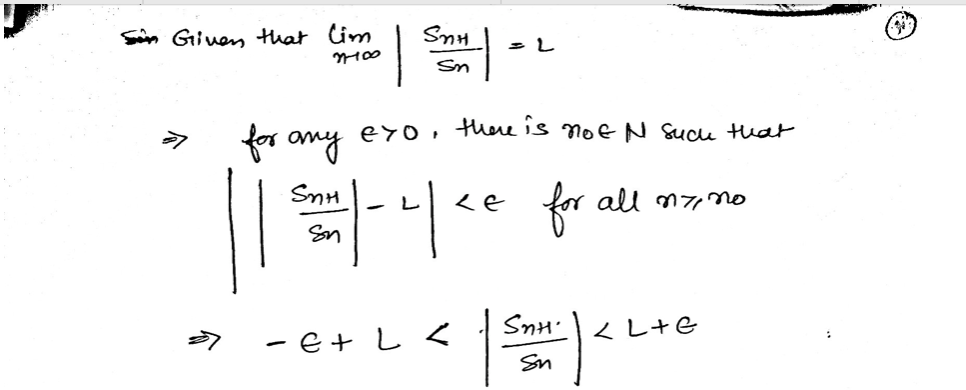 Given that lim n→∞ | Sn+1 / Sn | = L
⇒ for any ∈>0, there is no∈N such that
| | Sn+1 / Sn | - L | <∈ for all n≥no
⇒ -∈+L < | Sn+1 / Sn | < L+∈